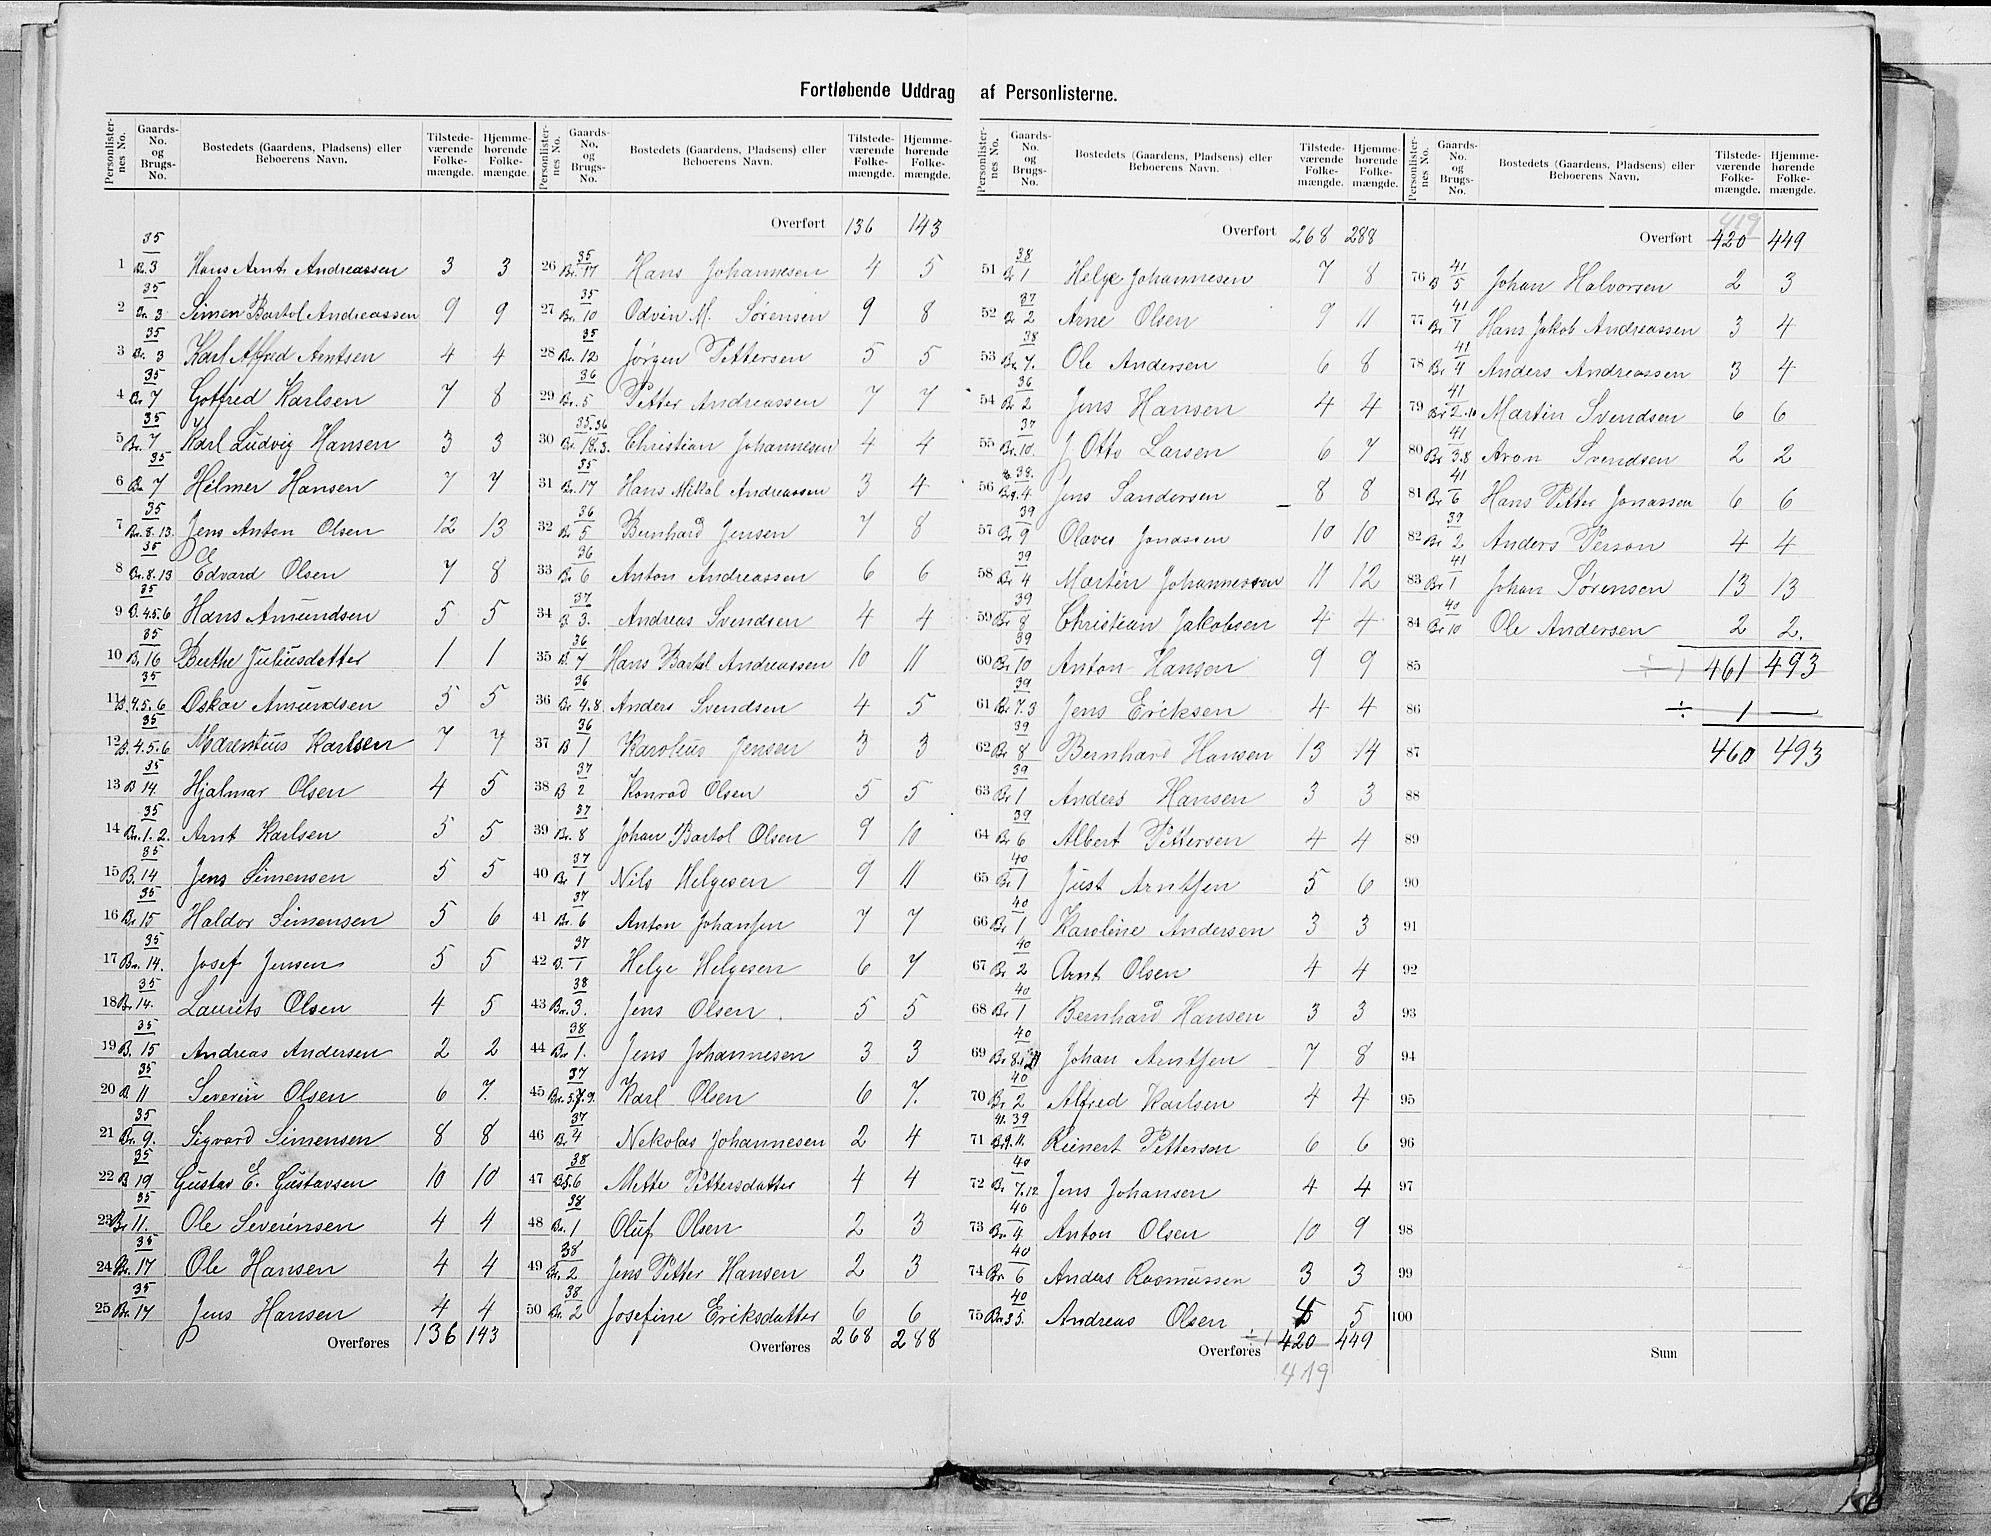 Fortløbende Uddrag af Personlisterne.
Personlisternes No. Gaards-No. og Brugs-No. Bostedets (Gaardens, Pladsens) eller Beboerens Navn. Tilstedeværende Folkemængde. Hjemmehørende Folkemængde.
1 35 Br. 3 Hans Arnt Andreassen 3 3
2 35 Br. 3 Simen Bartol Andreassen 9 9
3 35 Br. 3 Karl Alfred Arntsen 4 4
4 35 Br 7 Gotfred Karlsen 7 8
5 35 Br. 7 Karl Ludvig Hansen 3 3
6 35 Br. 7 Helmer Hansen 7 7
7 35 Br. 8. 13. Jens Anton Olsen 12 13
8 35 Br. 8. 13 Edvard Olsen 7 8
9 35 B. 4.5.6 Hans Amundsen 5 5
10 35 B. 16 Berthe Juliusdatter 1 1
11 35 B. 4.5.6 Oskar Amundsen 5 5
12 35 B. 4.5.6 Marentius Karlsen 7 7
13 35 B 14. Hjalmar Olsen 4 5
14 35 Br. 1. 2. Arnt Karlsen 5 5
15 35 B. 14 Jens Simensen 5 5
16 35 Br 15 Haldor Simensen 5 6
17 35 Br. 14. Josef Jensen 5 5
18 35 Br. 14. Laurits Olsen 4 5
19 35 B. 15 Andreas Andersen 2 2
20 35 B 11 Severin Olsen 6 7.
21 35 Br. 9. Sigvard Simensen 8 8
22 35 B 19 Gustav E. Gustavsen 10 10
23 35 Br 11. Ole Severinsen 4 4
24 35 Br. 17 Ole Hansen 4 4
25 35 Br. 17 Jens Hansen 4 4
Overføres 136 143
Personlisternes No. Gaards-No. og Brugs-No. Bostedets (Gaardens, Pladsens) eller Beboerens Navn. Tilstedeværende Folkemængde. Hjemmehørende Folkemængde.
Overført 136 143
26 35 Br. 17 Hans Johannesen 4 5
27 35 Br. 10 Odvin M. Sørensen 9 8
28 35 Br. 12 Jørgen Pettersen 5 5
29 36 Br. 5 Petter Andreassen 7 7
30 35.36 Br. 18.3. Christian Johannesen 4 4
31 35 Br. 17 Hans Mikal Andreassen 3 4
32 36 Br 5 Bernhard Jensen 7 8
33 36 Br 6 Anton Andreassen 6 6
34 37 B. 3. Andreas Svendsen 4 4
35 36 B. 7 Hans Bartol Andreassen 10 11
36 36 Br 4.8 Anders Svendsen 4 5
37 36 B 1 Karolius Jensen 3 3
38 37 B 2 Konrad Olsen 5 5
39 37 Br. 8 Johan Bartol Olsen 9 10
40 37 Br 1 Nils Helgesen 9 11
41 37 Br. 6 Anton Johansen 7 7
42 37 B. 1 Helge Helgesen 6 7
43 38 Br. 3. Jens Olsen. 5 5
44 38 Br 1. Jens Johannesen 3 3
45 37 Br. 5.7.9. Karl Olsen 6 7.
46 37 Br 4 Nekolas Johannesen 2 4
47 38 B 5.6 Mette Pettersdatter 4 4
48 38 Br. 1 Oluf Olsen 2 3
49 38 Br. 2 Jens Petter Hansen 2 3
50 38 Br. 2 Josefine Eriksdatter 6 6
Overføres 268 288
Personlisternes No. Gaards-No. og Brugs-No. Bostedets (Gaardens, Pladsens) eller Beboerens Navn. Tilstedeværende Folkemængde. Hjemmehørende Folkemængde.
Overført 268 288
51 38 Br 1 Helge Johannesen 7 8
52 37 Br 2 Arne Olsen 9 11
53 38 Br 7. Ole Andersen 6 8
54 36 Br 2 Jens Hansen 4 4
55 37 Br. 10. J. Otto Larsen 6 7
56 38. 4 Jens Sandersen 8 8
57 39 Br 9 Olaves Jonassen 10 10
58 39 Br 4 Martin Johannessen 11 12
59 39 Br 8 Christian Jakobsen 4 4
60 39 Br 10 Anton Hansen 9 9
61 39 Br 7.3 Jens Eriksen 4 4
62 39 Br 8 Bernhard Hansen 13 14
63 39 Br 1 Anders Hansen 3 3
64 39 Br 6 Albert Pettersen 4 4
65 40 Br 1 Just Arntsen 5 6
66 40 Br 1 Karoline Andersen 3 3
67 40 Br 2 Arnt Olsen 4 4
68 40 Br 1 Bernhard Hansen 3 3
69 40 Br 8. Johan Arntsen 7 8
70 40 Br 2 Alfred Karlsen 4 4
71 41. 39 Br 9. 11. Reinert Pettersen 6 6
72 40 Br 7.12 Jens Johansen 4 4
73 40 Br. 4 Anton Olsen 10 9
74 40 Br. 6 Anders Rasmussen 3 3
75 40 Br. 3 5. Andreas Olsen 5 5
Overføres ÷ 1 420 449
419
Personlisternes No. Gaards-No. og Brugs-No. Bostedets (Gaardens, Pladsens) eller Beboerens Navn. Tilstedeværende Folkemængde. Hjemmehørende Folkemængde.
419
Overført 420 449
76 41 B 5 Johan Halvorsen 2 3
77 41 Br 7 Hans Jakob Andreassen 3 4
78 41 Br 4 Anders Andreassen 3 4
79 41 Br 2.10 Martin Svendsen 6 6
80 41 Br 3.8 Aron Svendsen 2 2
81 41 Br 6 Hans Petter Jonassen 6 6
82 39 Br 2 Anders Person 4 4
83 41 Br 1 Johan Sørenson 13 13
84 40 Br 10 Ole Andersen 2 2.
85 ÷ 1 461 493
86 ÷ 1 —
87 460 493
88
89
90
91
92
93
94
95
96
97
98
99
100
Sum